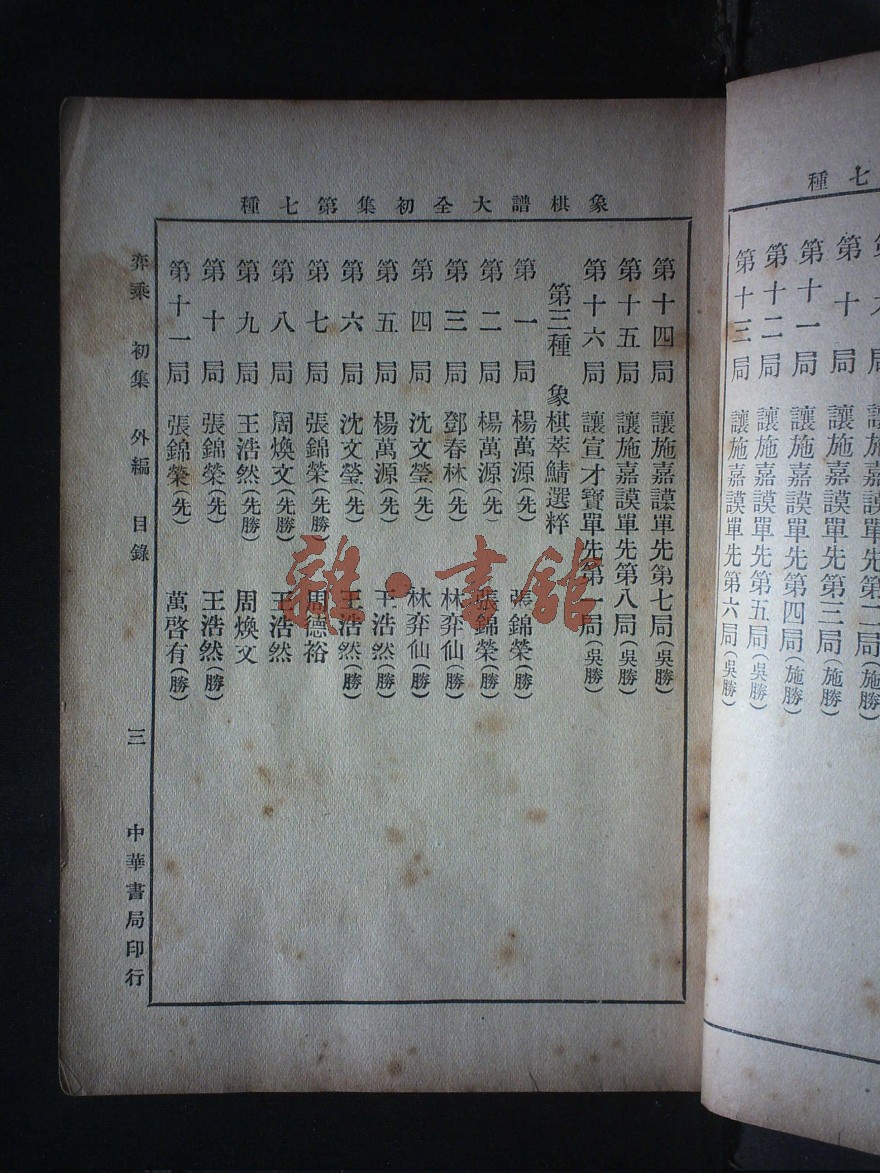 種七
第十一局 讓施嘉謨單先第四局(施勝)
第十二局 讓施嘉謨單先第五局(吳勝)
第十三局 讓施嘉謨單先第六局(吳勝)
象棋譜大全初集第七種
第十四局 讓施嘉謨單先第七局(吳勝)
第十五局 讓施嘉謨單先第八局(吳勝)
第十六局 讓宣才寶單先第一局(吳勝)
第三種 象棋萃鯖選粹
第一局 楊萬源(先) 張錦榮(勝)
第二局 楊萬源(先) 張錦榮(勝)
第三局 鄧春林(先) 林弈仙(勝)
第四局 沈文瑩(先) 林弈仙(勝)
第五局 楊萬源(先) 王浩然(勝)
第六局 沈文瑩(先) 王浩然(勝)
第七局 張錦榮(先勝) 周德裕
第八局 周煥文(先勝) 王浩然
第九局 王浩然(先勝) 周煥文
第十局 張錦榮(先) 王浩然(勝)
第十一局 張錦榮(先) 萬啓有(勝)
弈乘 初集 外編 目錄 三 中華書局印行
雜·書館